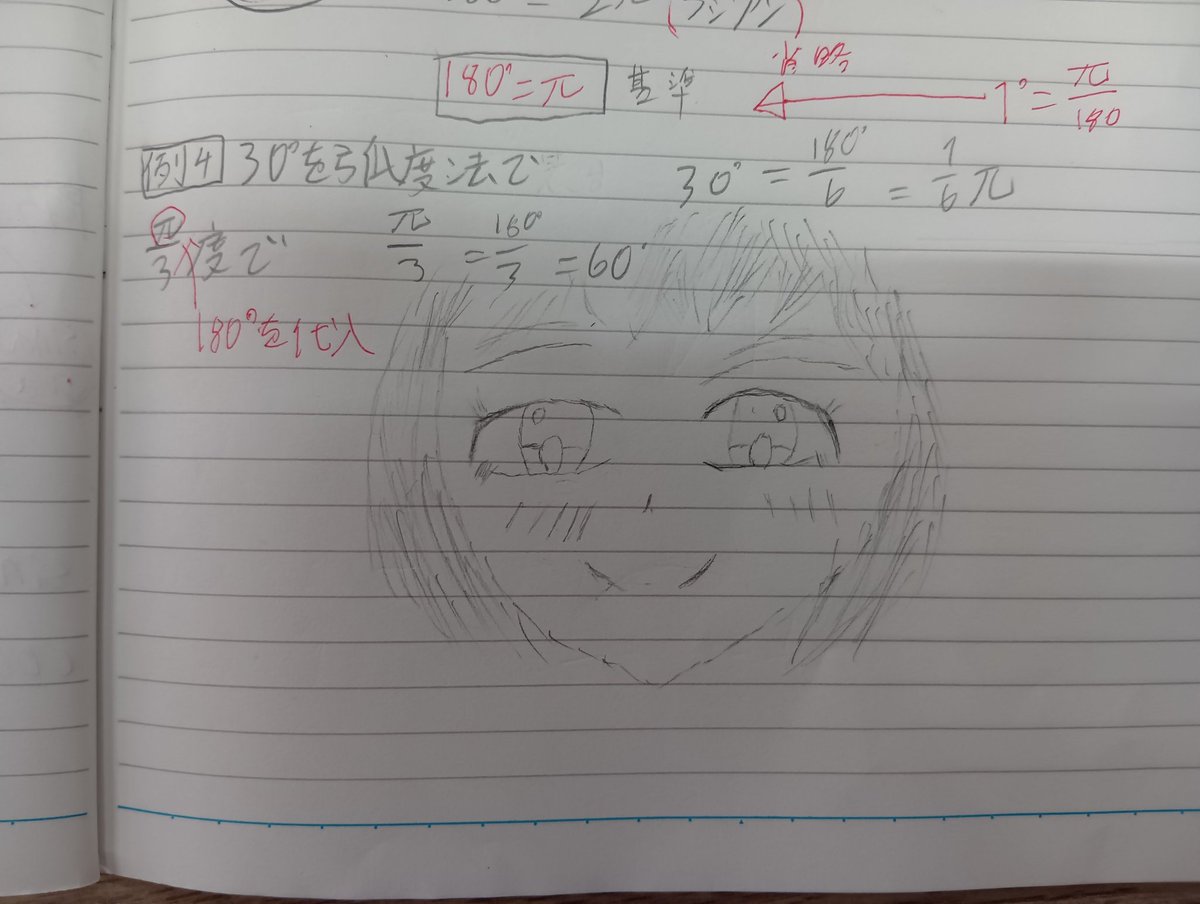 = 2π (ラジアン)
180°=π 基準 省略 1°=π/180
例4 30°を弧度法で 30° = 180°/6 = 1/6 π
π/3 度で π/3 = 180°/3 = 60°
180°を代入